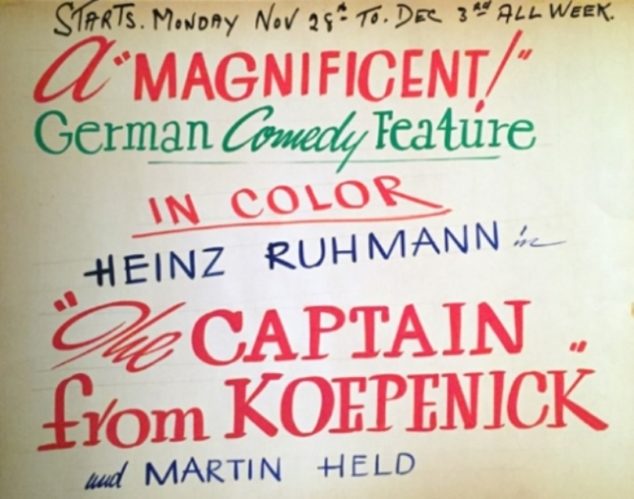 STARTS. MONDAY NOV 28th TO. DEC 3rd ALL WEEK.
A "MAGNIFICENT!"
German Comedy Feature
IN COLOR
HEINZ RUHMANN in
"The CAPTAIN
from KOEPENICK"
and MARTIN HELD